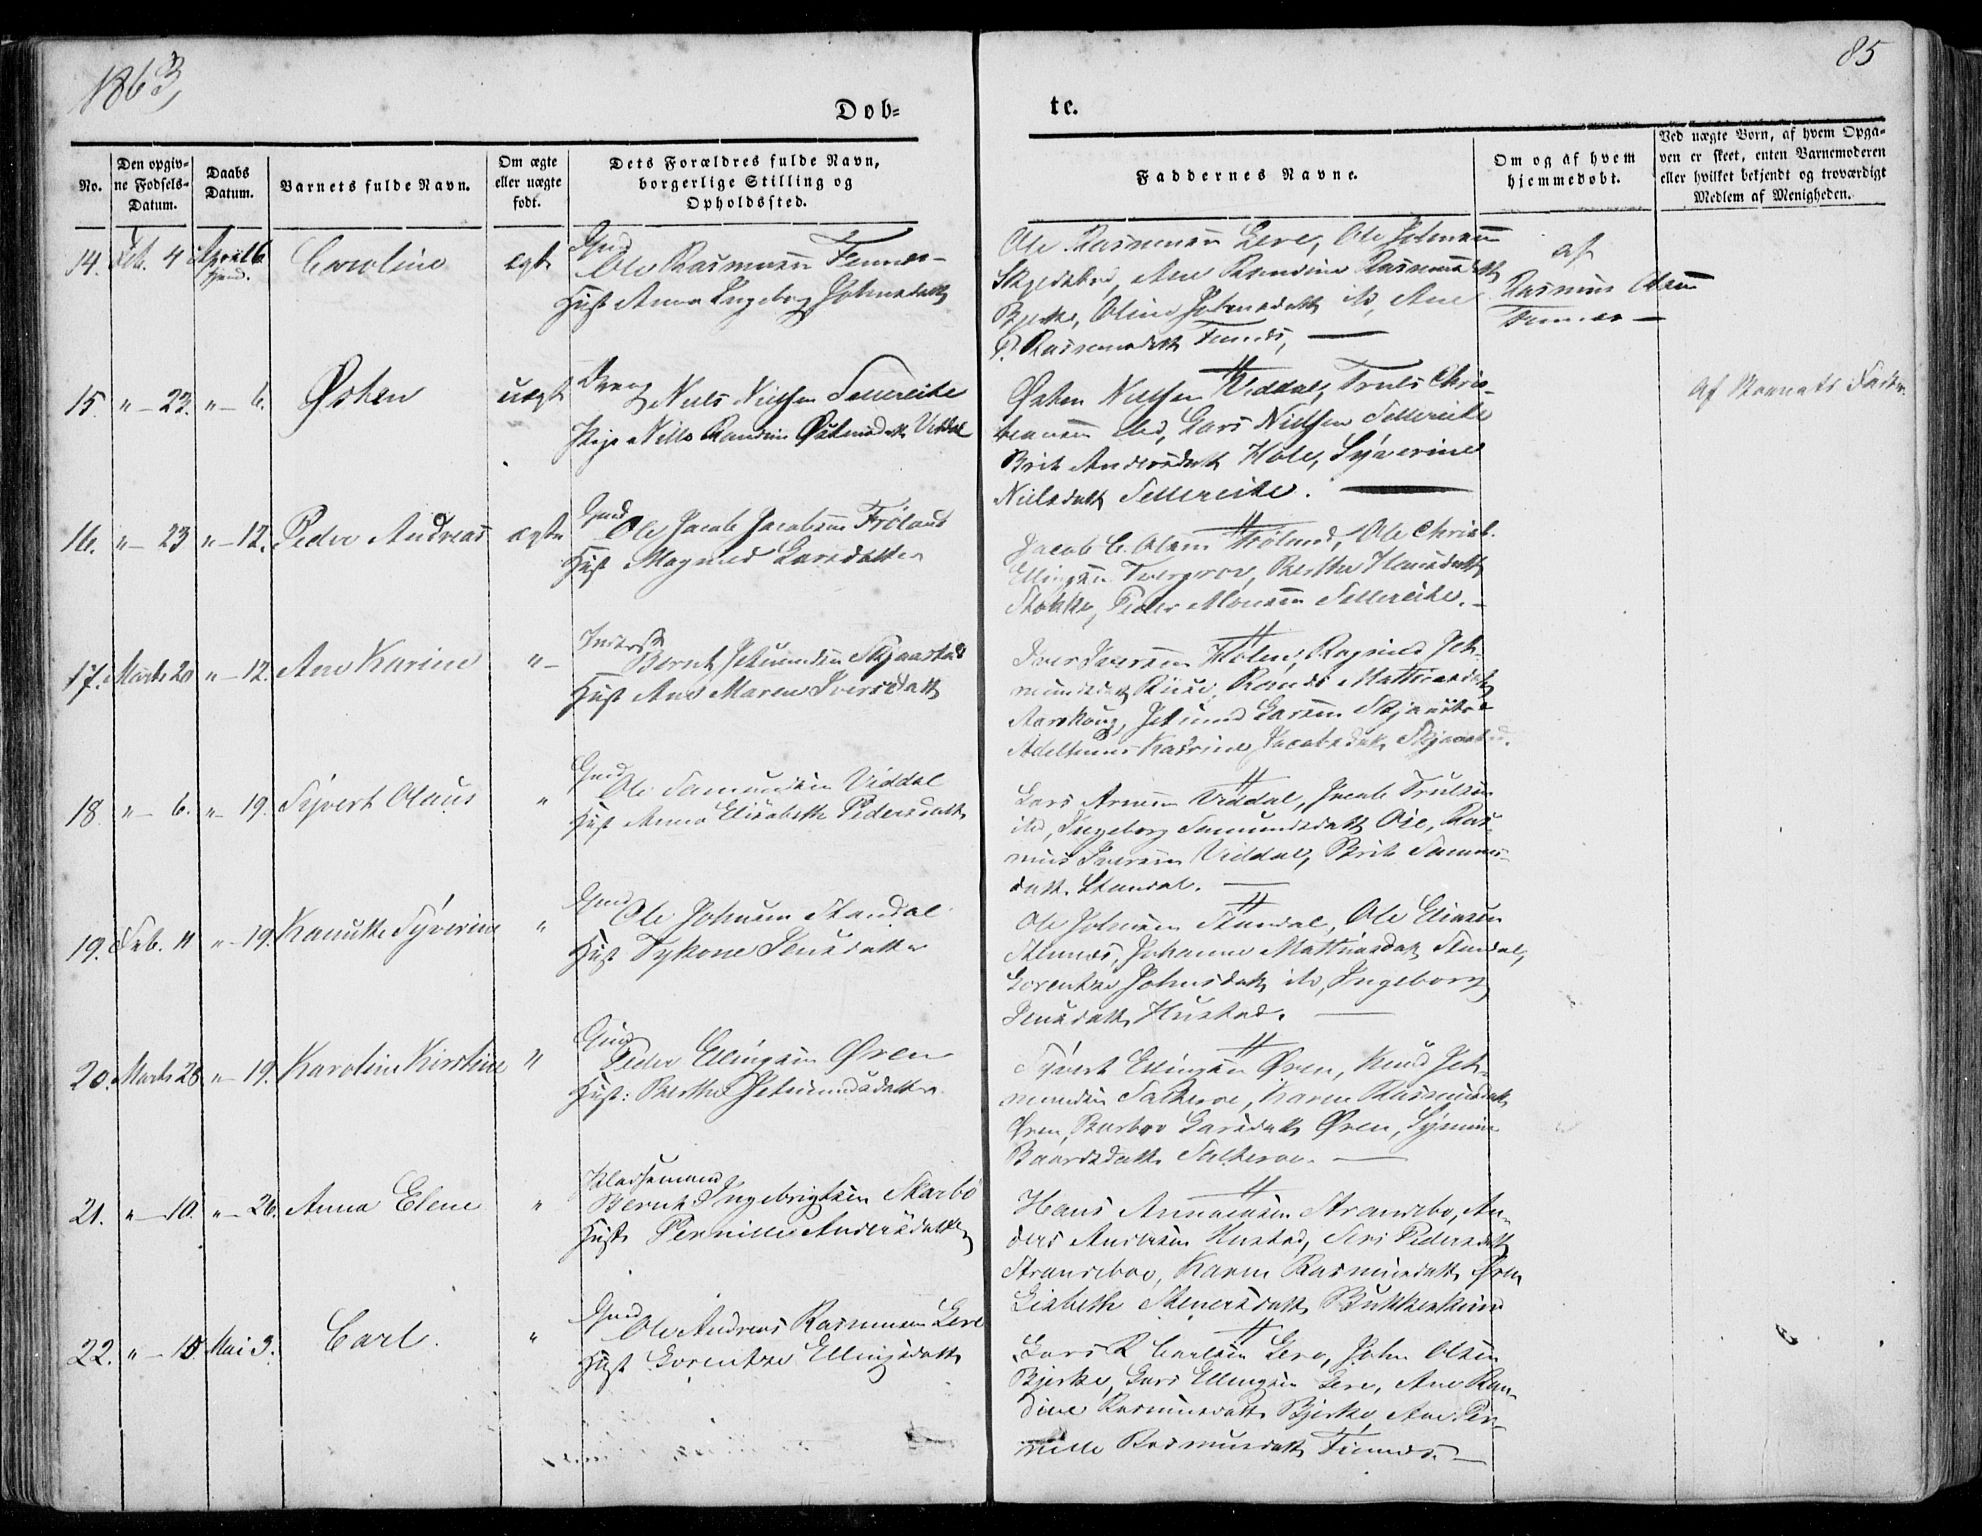 1863,
85
Døb=
te.
No.
Den opgiv-
ne Fødsels-
Datum.
Daabs
Datum.
Barnets fulde Navn.
Om ægte
eller uægte
født.
Dets Forældres fulde Navn,
borgerlige Stilling og
Opholdssted.
Faddernes Navne.
Om og af hvem
hjemmedøbt.
Ved uægte Børn, af hvem Opga-
ven er skeet, enten Barnemoderen
eller hvilket bekjendt og troværdigt
Medlem af Menigheden.
14. Feb. 4 April 6. Caroline ægte Gmd
Ole Rasmussen Finnes
Hust Anna Ingeborg Johnsdatt
Ole Rasmussen Lere, Ole Johnsen
Ane Randine Rasmusdatt
Bjerke, Oline Johnsdatt ib, Ane
P. Rasmusdatt Finnes,
af
Rasmus Olsen
Finnes
15. " 23. " 6. Østen uægt Dreng
Niels Nielsen Sellereite
Pige Nille Randine Østensdatt Viddal
Østen Nielsen Viddal, Truls Chris-
tensen ibd, Lars Nielsen Sellereite
Brit Andersdatt Hole, Syverine
Nielsdatt Sellereite.
af Barnets Fader.
16. " 23 " 12. Peder Andreas ægte Gmd
Ole Jacob Jacobsen Frøland
Hust Magnild Larsdatter
Jacob C. Olsen Frøland, Ole Christ.
Ellingsen Tvergrov, Berthe Hansdatt
Stokke, Peder Monsen Sellereite.
17. Marts 20 " 12. Ane Karine " Inderst
Bernt Jetmundsen Skjaastad
Hust Ane Maren Iversdatt
Iver Iversen Holen, Ragnild Jet-
mundsdatt Riise, Rande Mathiasdatt
Aarskoug, Jetmund Larsen Skjaastad
Karrine Jacobsdatt Skjaastad.
18. " 6. " 19. Syvert Olaus " Gmd
Ole Samundsen Viddal
Hust Anna Elisabeth Pedersdatt
Lars Arnesen Viddal, Jacob Trulsen
ibd, Ingeborg Samundsdatt Øie, Ras-
mus Iversen Viddal, Brit
datt. Standal.
19. Feb. 11 " 19. Kanutte Syverine " Gmd
Ole Johnsen Standal
Hust Tykone Jensdatter
Ole Johnsen Standal, Ole Eliasen
Stennes, Johanne Mathiasdatt Standal,
Lorentze Johnsdatt ib, Ingeborg
Jensdatt Hustad.
20. Marts 28 " 19. Karoline Kirstine " Gmd
Peder Ellingsen Øren
Hust: Berthe Jetmundsdatter
Syvert Ellingsen Øren, Knud Jet-
mundsen Sætheroe, Karen Rasmusdatt
Øren, Barbro Larsdatt Øren,
Baardsdatt Sætheroe.
21. " 10. " 26. Anna Elene " Pladsemand
Bernt Ingebrigtsen Skarbø
Hust Pernille Andersdatter
Hans Strandeboe, An-
ders Andersen Hustad, Seri Pedersdatt
Strandeboe, Karen Rasmusdatt Øren
Lisbeth Stenersdatt
22. " 15 Mai 3. Carl. " Gmd
Ole Andreas Rasmussen Lere
Hust Lorentze Ellingsdatt
Lars R. Carlsen Lere, John Olsen
Bjerke, Lars Ellingsen Lere, Ane Ran-
dine Rasmusdatt Bjerke, Ane Per-
nille Rasmusdatt Finnes.